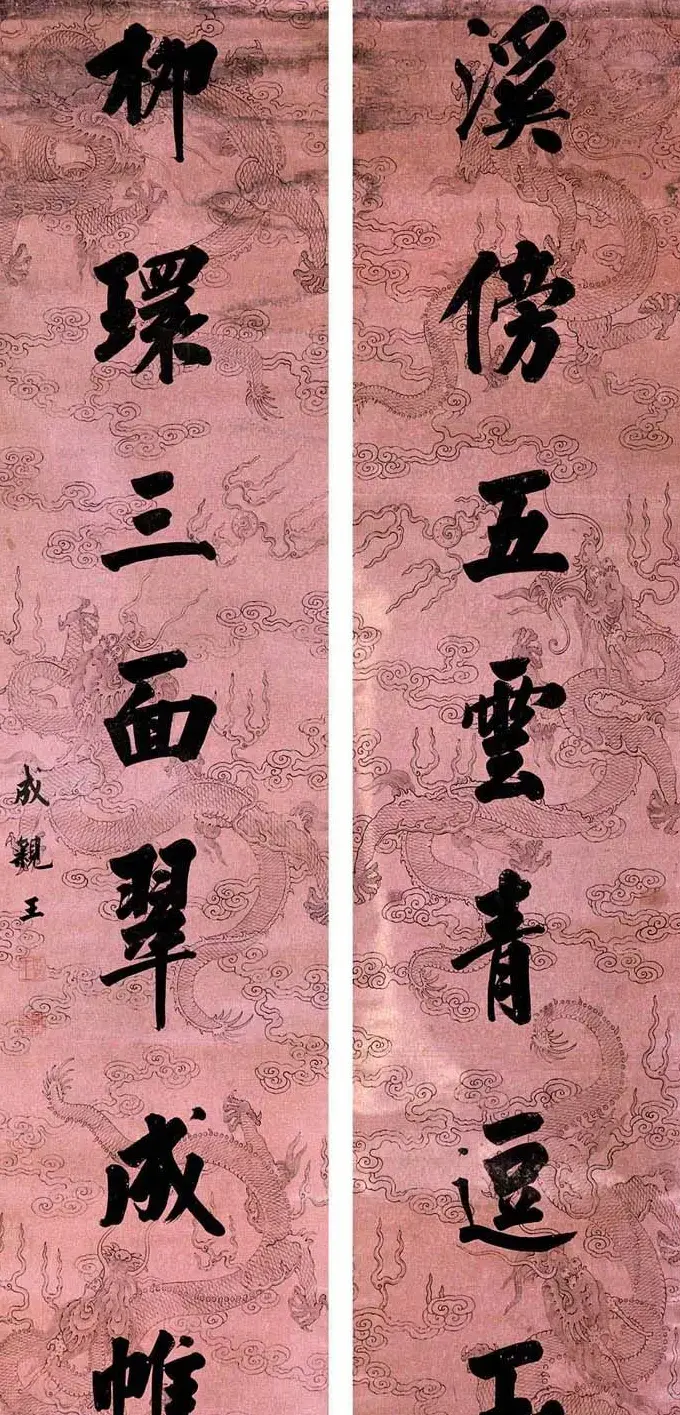 溪傍五雲青逗
柳環三面翠成帷
成親王